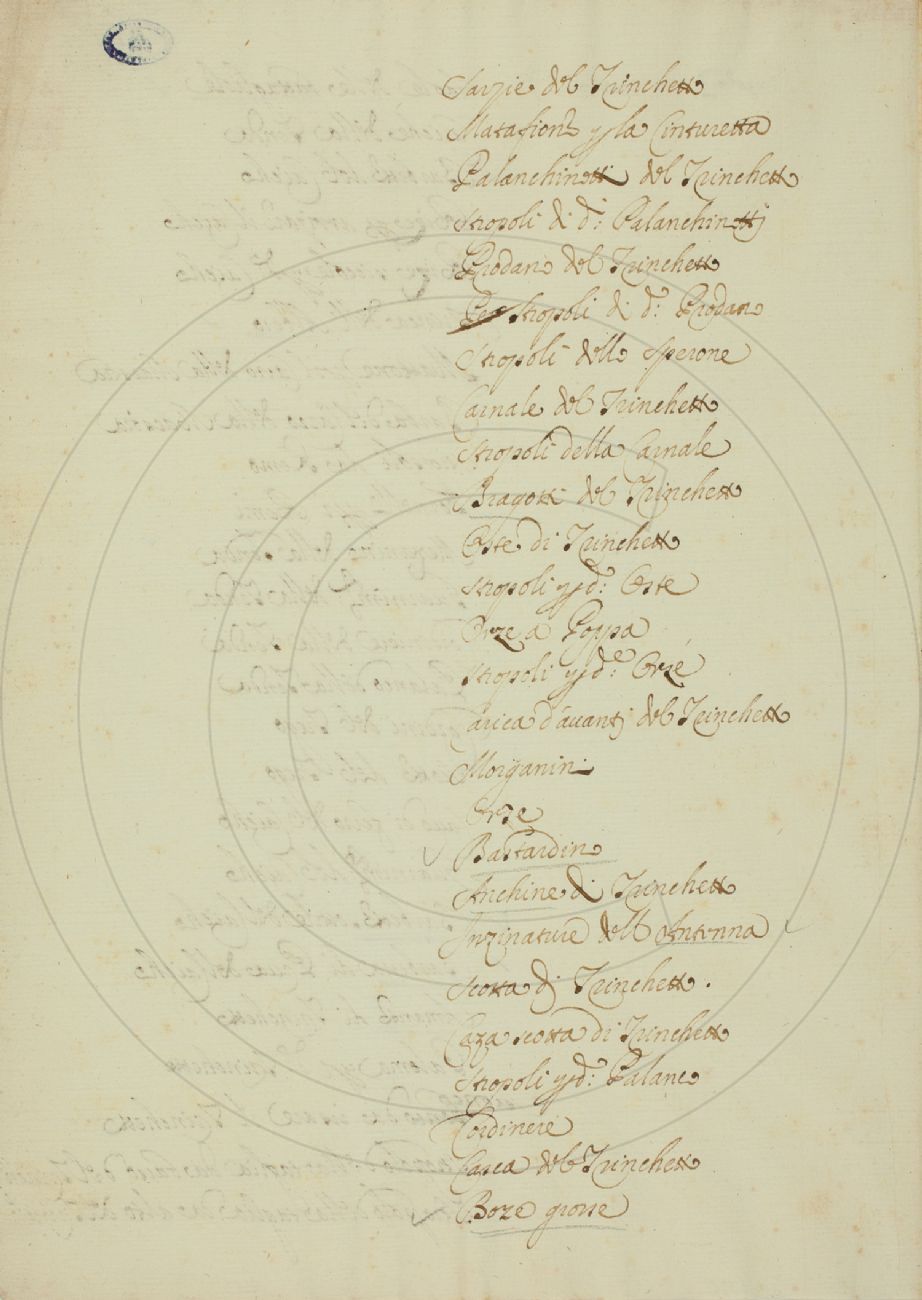 Sarzie del Trinchetto
Matafioni p la Cinturetta
Palanchinetti del Trinchetto
Stropoli di d.i Palanchinetti
Prodano del Trinchetto
Per Stropoli di d.o Prodano
Stropoli dello Sperone
Carnale del Trinchetto
Stropoli della Carnale
Bragotti del Trinchetto
Oste di Trinchetto
Stropoli p d.e Oste
Orze a Poppa
Stropoli p d.e Orze
Carica d'avanti del Trinchetto
Morganini
Orze
Bastardino
Anchine di Trinchetto
Inzinature dell Antenna
Scotta di Trinchetto.
Caza scotta di Trinchetto
Stropoli p d.o Palanc
Cordiniere
Carca del Trinchetto
Boze grosse